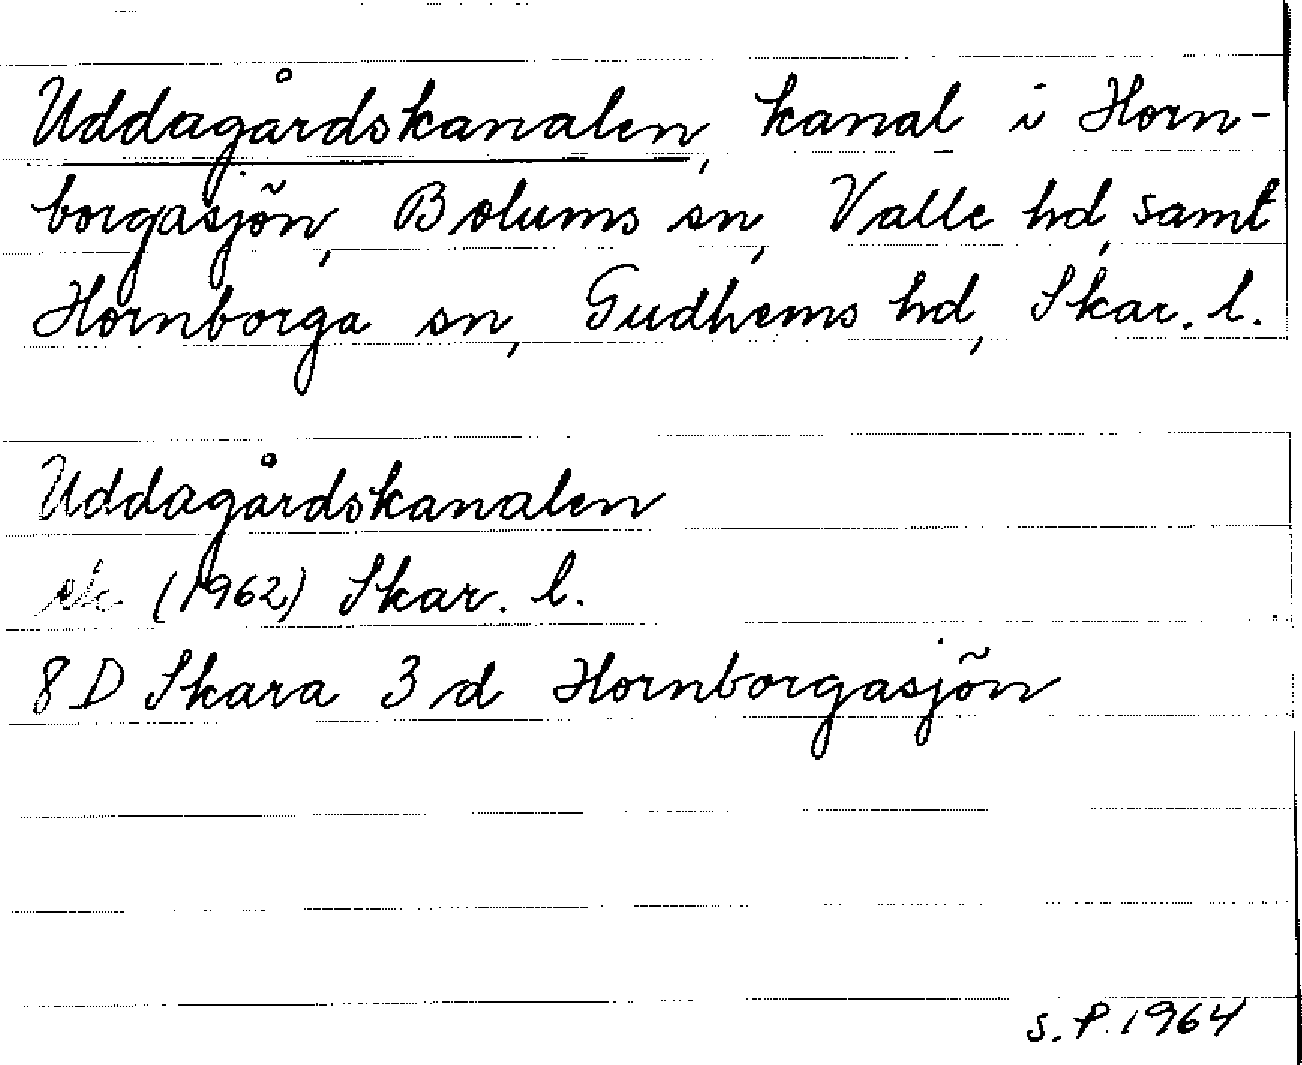 Uddagårdskanalen, kanal i Horn-
borgasjön, Bolums sn, Valle hd, samt
Hornborga sn, Gudhems hd, Skar. l.
Uddagårdskanalen
ek (1962) Skar. l.
8 D Skara 3 d Hornborgasjön
S. P. 1964